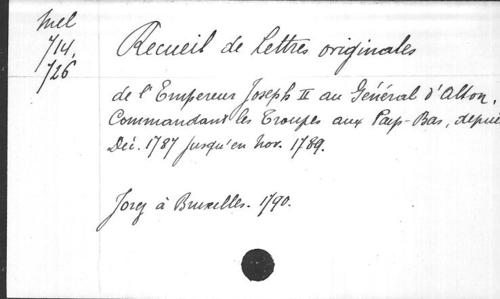 Mel
714,
726
Recueil de lettres originales
de l'Empereur Joseph II au Général d'Alton,
Commandant les Troupes aux Pays-Bas, depuis
Déc. 1787 jusqu'en Nov. 1789.
à Bruxelles. 1790.